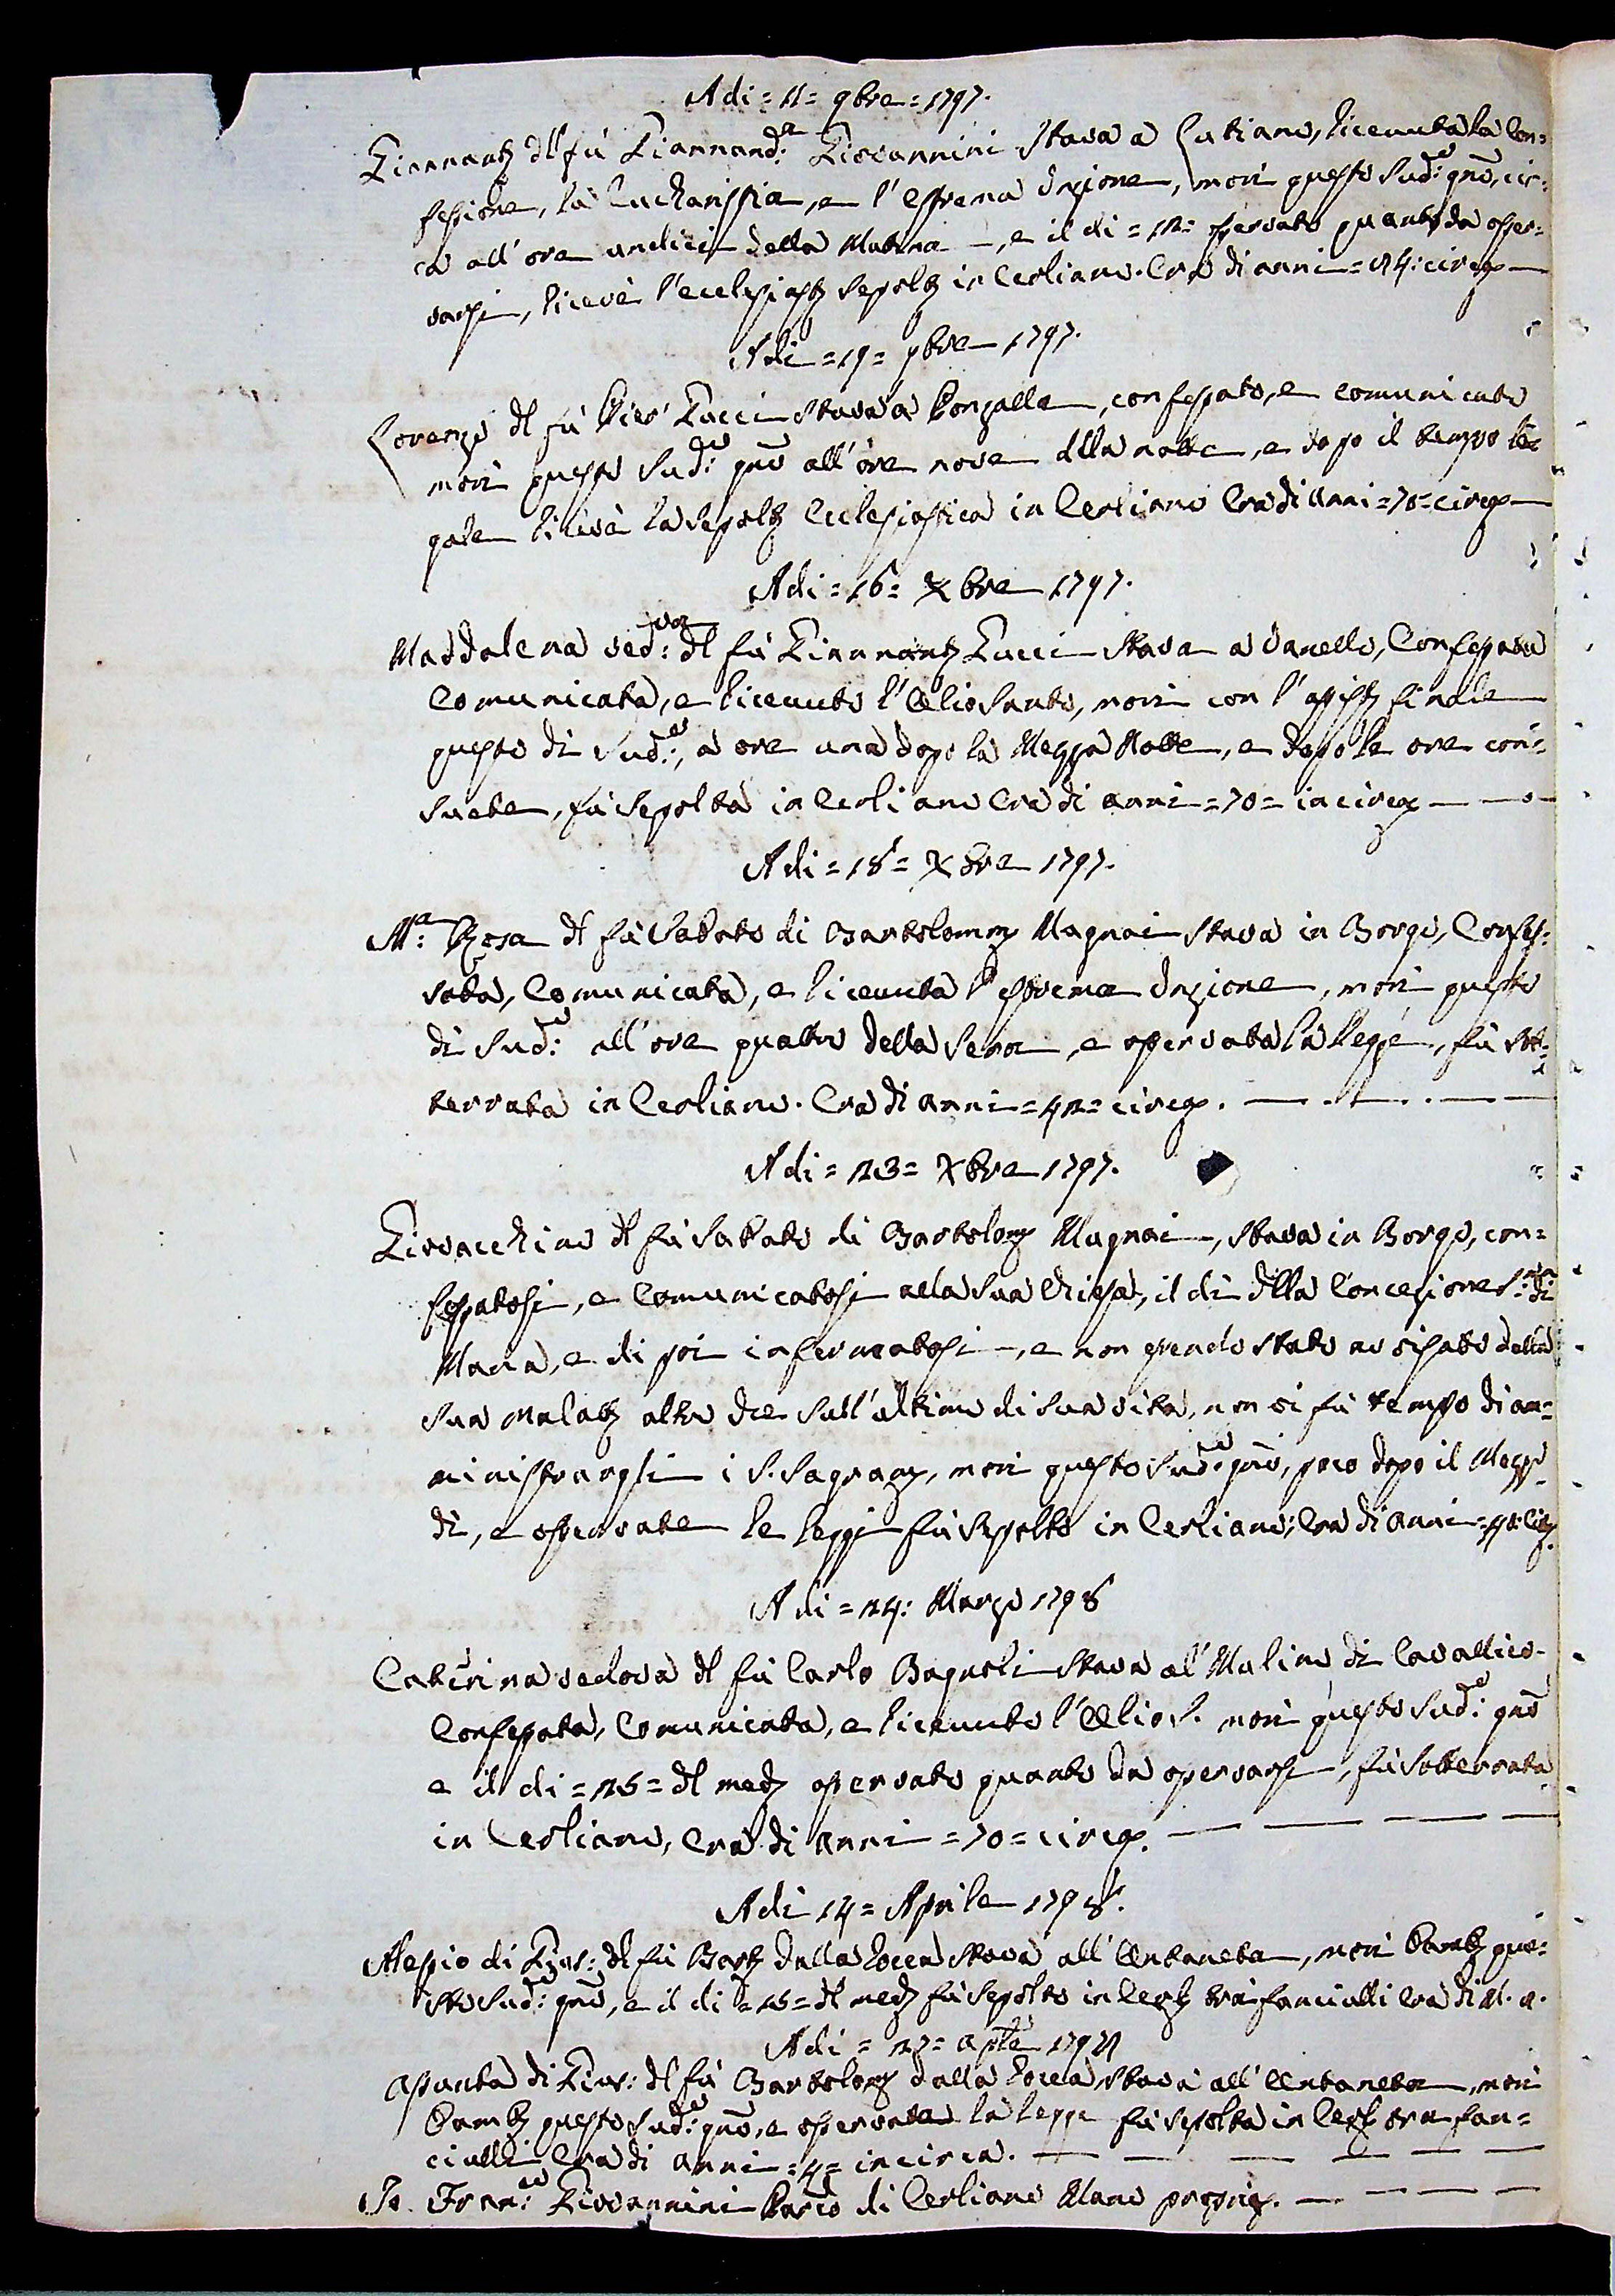 Adi = 11 = 9bre = 1797.
del fù Giovannini Stava a Lutiano, ricevuta la Con=
fessione, la Eucharistia, e l'estrema Unzione, morì questo Sud:o gno, cir=
ca all'ore undici della Matina, e il di = 12 = osservato quanto da osser=
varsi, ricevè l'ecclesiastz Sepoltz in Cerliano. Era di anni = 84: circa
Adi = 19 = 9bre 1797.
Lorenzo del fù Pier Gucci Stava a Ronzalla, confessato, e comunicato
morì questo Sud:o gno all'ore nove della notte, e dopo il tempo le=
gale ricevè la Sepoltz Ecclesiastica in Cerliano Era di Anni = 70 = circa
Adi = 16 = Xbre 1797.
Maddalena ved:va del fù Gucci Stava a Vanello, Confessata
Comunicata, e ricevuto l'Olio Santo, morì con l'assistz finale
questo dì Sud:o, a ore una dopo la Mezza Notte, e dopo le ore con=
suete, fù Sepolta in Cerliano Era di anni = 70 = in circa
Adi = 18 = Xbre 1797.
M:a Rosa del fù Sabato di Bartolommeo Magnai Stava in Borgo, Confes=
sata, Comunicata, e ricevuta l'estrema Unzione, morì questo
dì Sud:o all'ore quattro della Sera, e osservata la legge, fù sot=
terrata in Cerliano. Era di anni = 42 = circa.
Adi = 23 = Xbre 1797.
Giovacchino del fù Sabato di Bartolomeo Magnai, stava in Borgo, con=
fessatosi, e Comunicatosi alla Sua Chiesa, il dì della Concezione S:ma di
Maria, e di poi infermatosi, e non essendo stato avvisato della
Sua Malatz altro che sull'ultimo di sua vita, non vi fù tempo di am=
ministrargli i S. Sagramz, morì questo Sud:o gno, poco dopo il Mezzo
dì, e osservate le leggi fù Sepolto in Cerliano; Era di anni = circa
Adi = 24: Marzo 1798
Caterina vedova del fù Carlo Bagnoli Stava al Mulino di Cavallico
Confessata, Comunicata, e ricevuto l'Olio S. morì questo Sud:o gno
e il di = 25 = del medz osservato quanto da osservarsi, fù Sotterrata
in Cerliano, Era di Anni = 70 = circa.
Adi 14 = Aprile 1798.
Alessio di Gius: del fù Bartz dalla Rocca Stava all' morì Bambz que=
sto Sud:o gno, e il di = 15 = del medz fù Sepolto in Cerlz trà fanciulli Era di
Adi = 27 = aple 179
Asunta di Gius: del fù Bartolomeo dalla Rocca Stava all' morì
Bambz questo Sud:o gno, e osservata la legge fù sepolta in Cerlz tra fan=
ciulli Era di anni = 4 = in circa.
Io Fran:co Giovannini Parco di Cerliano Mano propria.